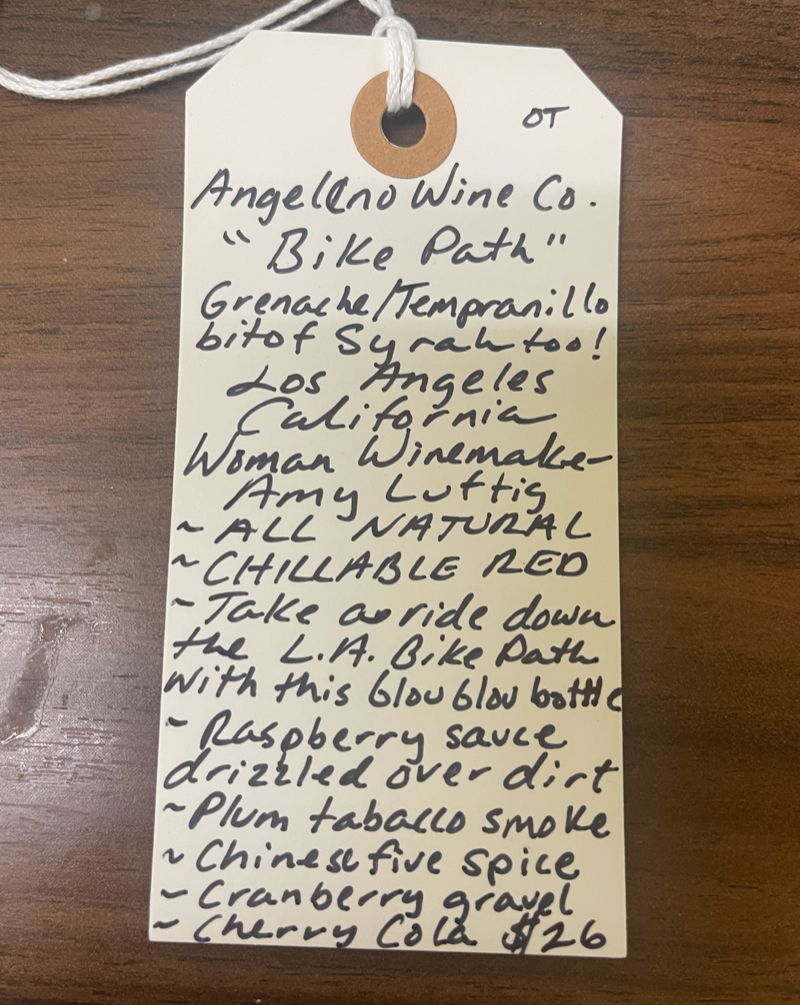 OT
Angeleno Wine Co.
"Bike Path"
Grenache/Tempranillo
bit of Syrah too!
Los Angeles
California
Woman Winemake-
Amy Luftig
~ ALL NATURAL
~ CHILLABLE RED
~ Take a ride down
the L.A. Bike Path
with this glou glou bottle
~ Raspberry sauce
drizzled over dirt
~ Plum tabacco smoke
~ Chinese five spice
~ Cranberry gravel
~ Cherry Cola $26